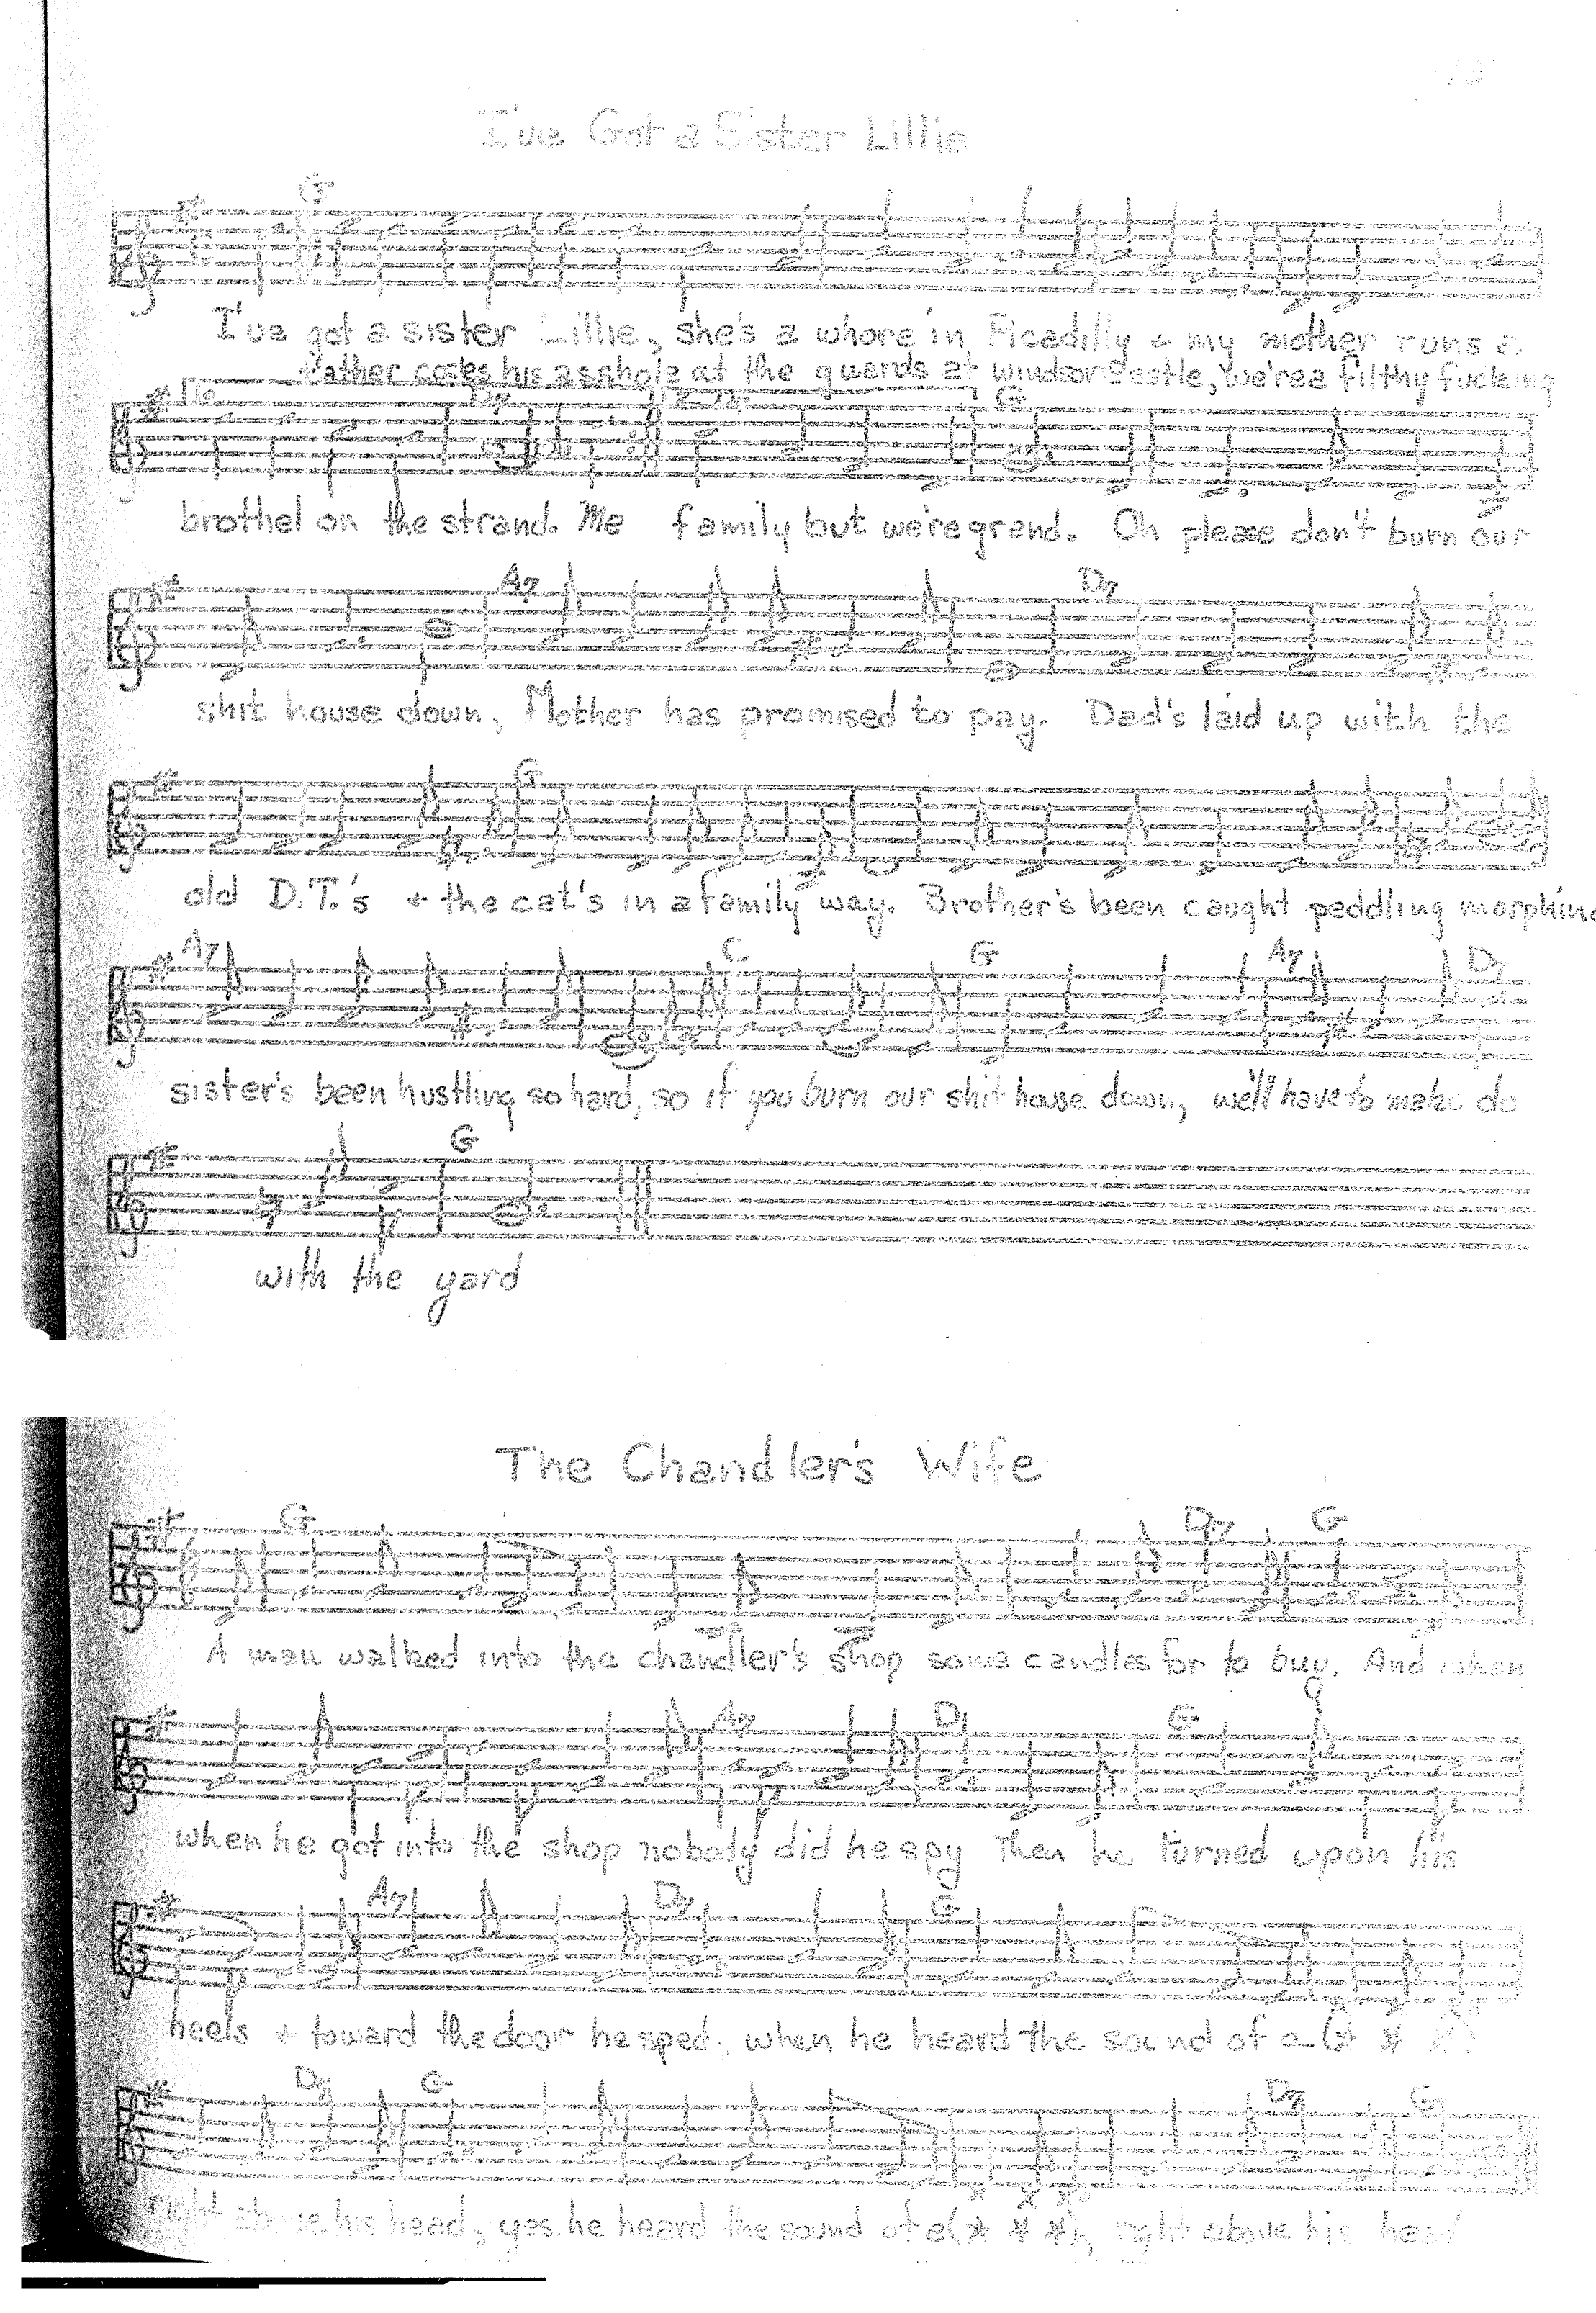 I've Got a Sister Lillie
G
I've got a sister Lillie, she's a whore in Picadilly & my mother runs a
Father cocks his asshole at the guards at Windsor Castle, we're a filthy fucking
D7 G
brothel on the strand. Me family but we're grand. Oh please don't burn our
A7 D7
shit house down, Mother has promised to pay. Dad's laid up with the
G
old D.T.'s & the cat's in a family way. Brother's been caught peddling morphine
A7 C G A7 D
sister's been hustling so hard, so if you burn our shit house down, we'll have to make do
G
with the yard
The Chandler's Wife
G D7 G
A man walked into the chandler's shop some candles for to buy. And when
A7 D G
when he got into the shop nobody did he spy Then he turned upon his
A7 D7 G
heels & toward the door he sped, when he heard the sound of a (* * *)
D7 G D7 G
right above his head, yes he heard the sound of a (* * *), right above his head